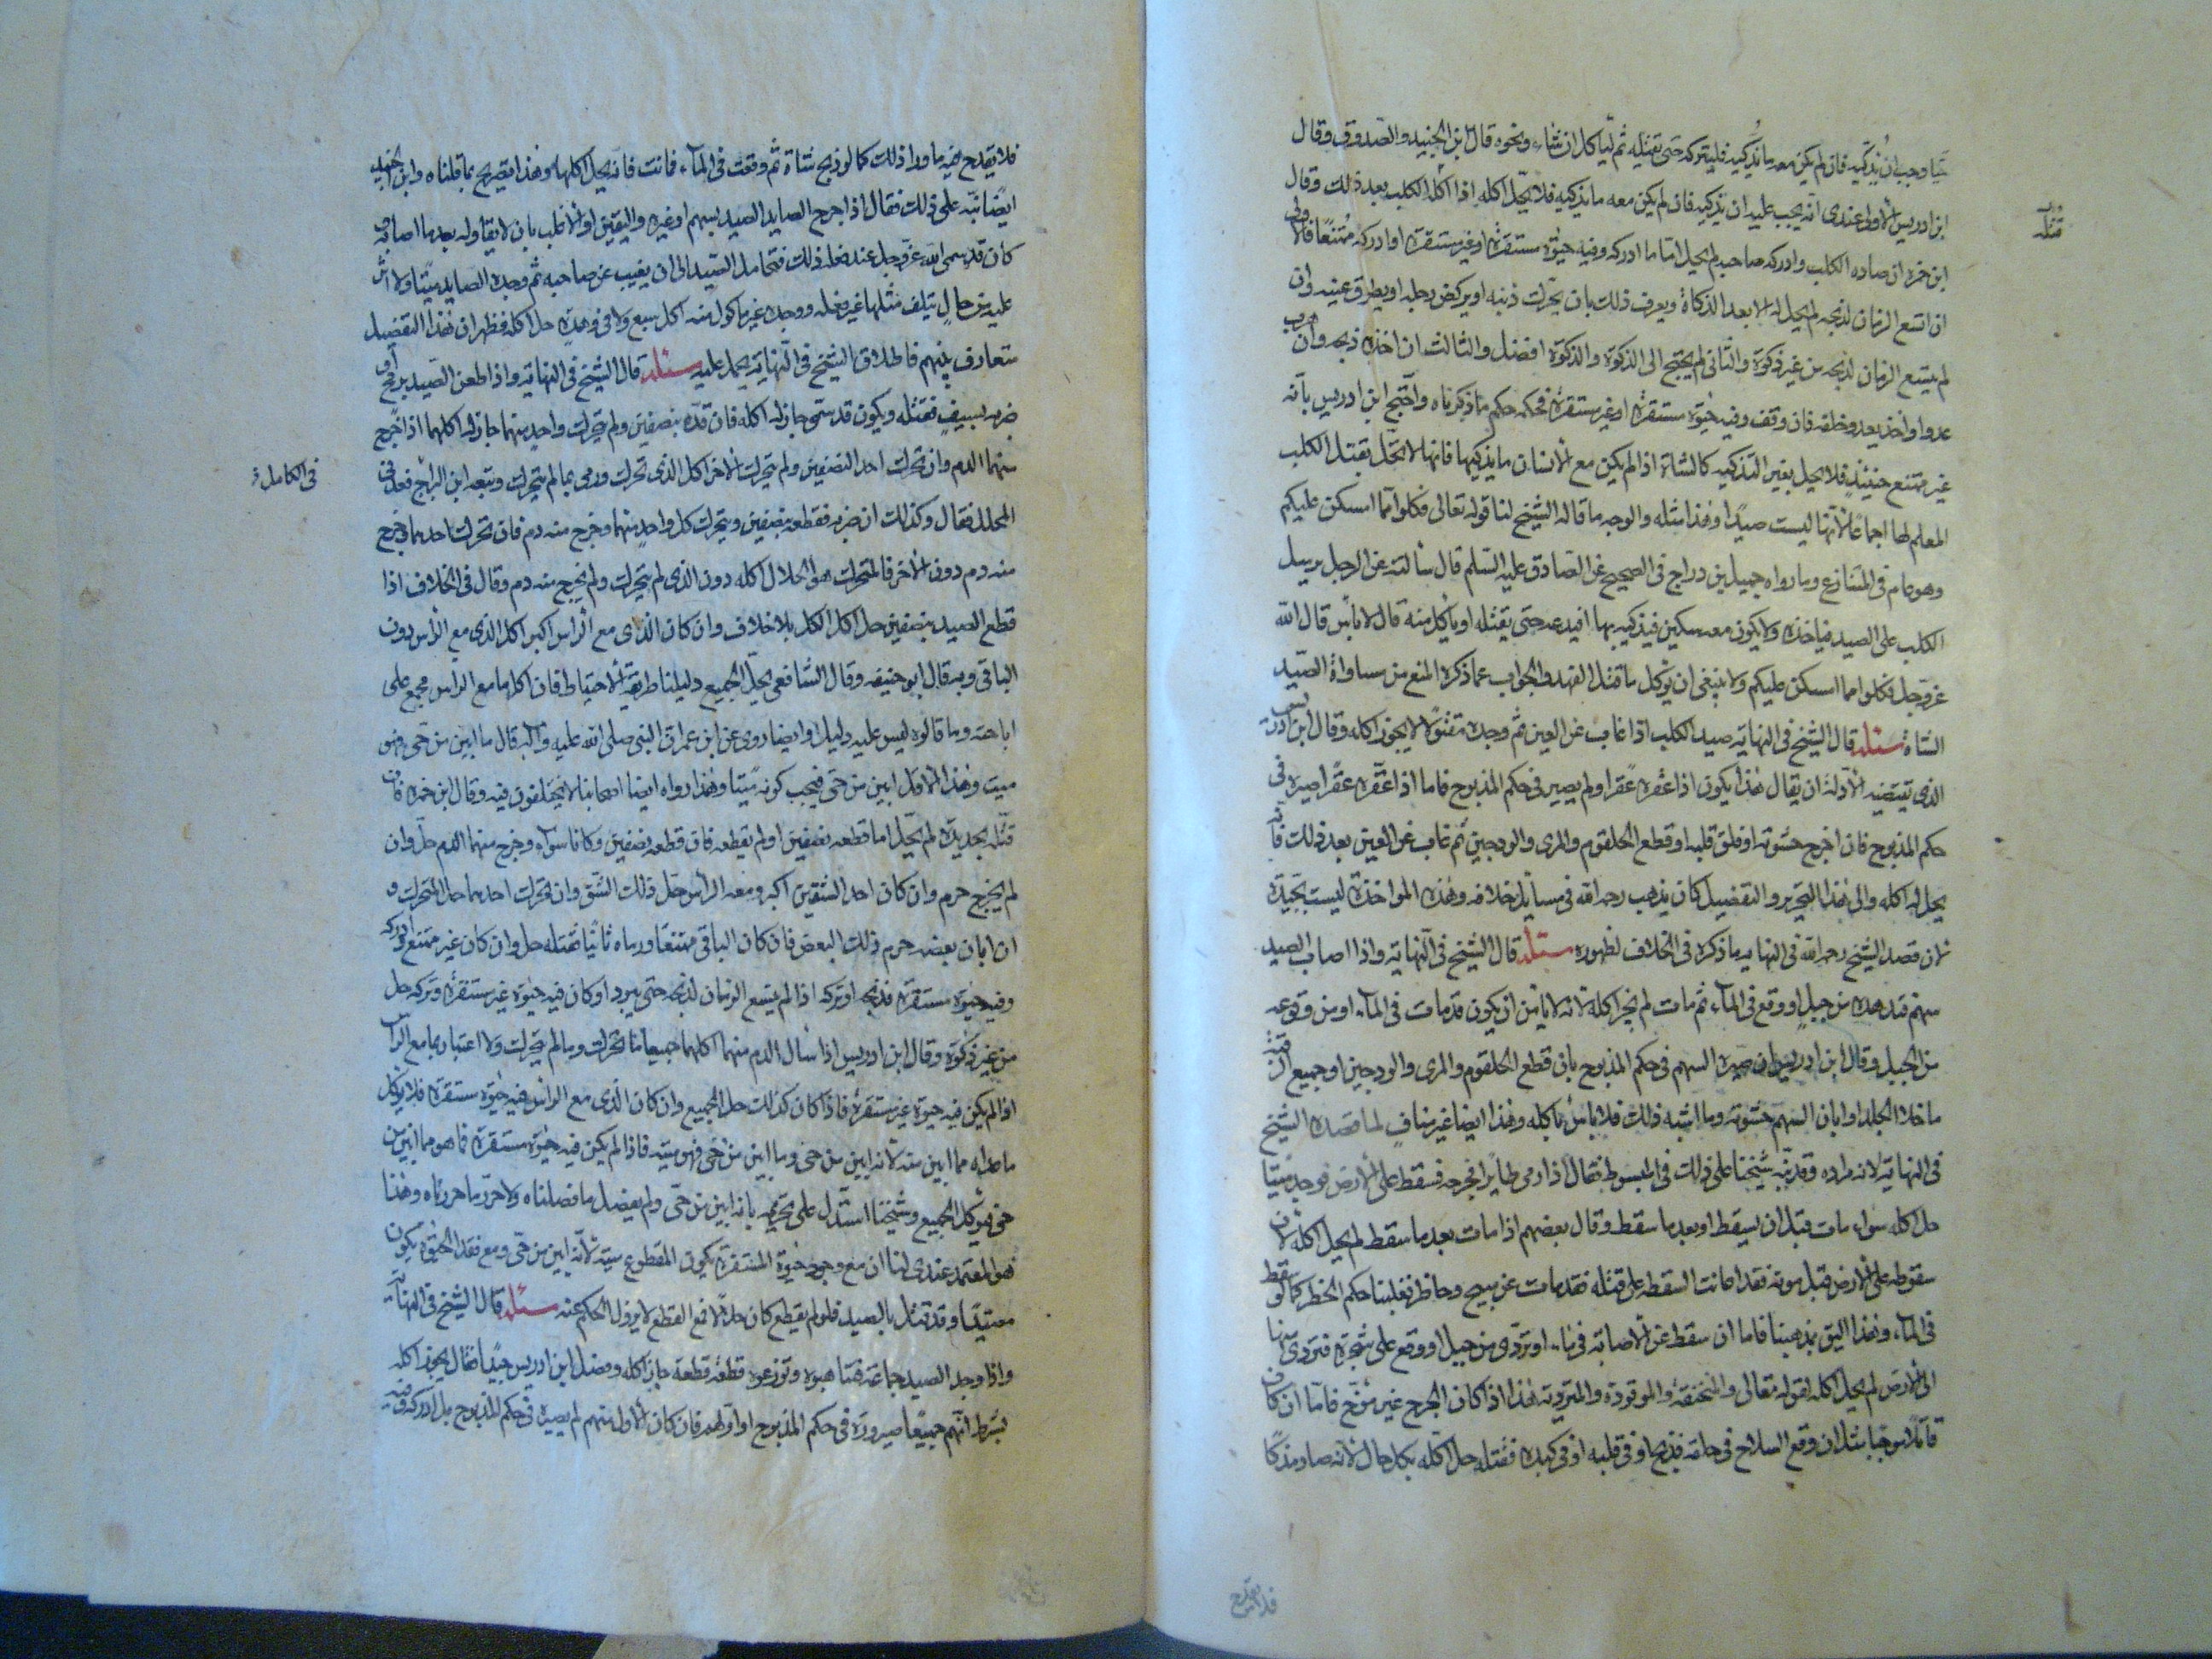 حيا وجب ان يذكيه فان لم يكن معه ما يذكيه فليتركه حتى يقتله ثم ليأكل ان شاء ونحوه قال ابن الجنيد والصدوق وقال
ابن ادريس الاولى عندى انه يجب عليه ان يذكيه فان لم يكن معه ما يذكيه فلا يحل اكله اذا اكله الكلب بعد ذلك وقال
قتله
ابن حمزه ان صاده الكلب وادركه صاحبه لم يحل اما ما ادركه وفيه حيوة مستقرة او غير مستقرة او ادركه ممتنعا فالاول
ان اتسع الزمان لذبحه لم يحل له الا بعد الذكاة ويعرف ذلك بان يحرك ذنبه او يركض رجله او يطرق عينه وان
لم يتسع الزمان لذبحه من غير ذكوة والثانى لم يحتج الى الذكوة والذكوة افضل والثالث ان اخذه ذبحه وان
عدوا واخذ يعدو خلفه فان وقف وفيه حيوة مستقرة او غير مستقرة فحكمه حكم ما ذكرناه واحتج ابن ادريس بانه
غير ممتنع حينئذ فلا يحل بغير التذكيه كالشاة اذا لم يكن مع الانسان ما يذكيها فانها لا تحل بقتل الكلب
المعلم لها اجماعا لانها ليست صيدا وهذا مثله والوجه ما قاله الشيخ لنا قوله تعالى فكلوا مما امسكن عليكم
وهو عام فى المتنازع وما رواه جميل بن دراج فى الصحيح عن الصادق عليه السلم قال سألته عن الرجل يرسل
الكلب على الصيد فياخذه ولا يكون معه سكين فيذكيه بها افيدعه حتى يقتله او يأكل منه قال لا بأس قال الله
عز وجل فكلوا مما امسكن عليكم ولا ينبغى ان يؤكل ما قتل الفهد والجواب عما ذكره المنع من مساواة الصيد
الشاة مسئلة قال الشيخ فى النهايه صيد الكلب اذا غاب عن العين ثم وجده مقتولا لا يجوز اكله وقال ابن ادريس
الذى تقتضيه الادلة ان يقال هذا يكون اذا عقره عقرا ولم يصير فى حكم المذبوح فاما اذا عقره عقرا صيره فى
حكم المذبوح فان اخرج حشوته او فلق قلبه او قطع الحلقوم والمرى والودجين ثم غاب عن العين بعد ذلك فانه
يحل له اكله والى هذا التحرير والتفصيل كان يذهب رحمه الله فى مسايل خلافه وهذه المواخذة ليست بجيدة
لان قصد الشيخ رحمه الله فى النهايه ما ذكره فى الخلاف لظهوره مسئلة قال الشيخ فى النهايه واذا اصاب الصيد
سهم فتدهده من جبل او وقع فى الماء ثم مات لم يجز اكله لانه لا يأمن ان يكون قد مات فى الماء او من وقوعه
من الجبل وقال ابن ادريس ان صيره السهم فى حكم المذبوح بان قطع الحلقوم والمرى والودجين او جميع الرقبة
ما خلا الجلد او ابان السهم حشوته وما اشبه ذلك فلا باس باكله وهذا ايضا غير مناف لما قصده الشيخ
فى النهاية لانه مراده وقد نبه شيخنا على ذلك فى المبسوط فقال اذا رمى طايرا فجرحه فسقط على الارض فوجد ميتا
حل اكله سواء مات قبل ان يسقط او بعد ما سقط وقال بعضهم اذا مات بعد ما سقط لم يحل اكله لان
سقوطه على الارض قبل موته فقد اعانت السقطة على قتله فقد مات عن مبيح وحاظر فغلبنا حكم الخطر كما لو سقط
فى الماء وهذا اليق بمذهبنا فاما ان سقط عن الاصابه فى ماء او تردى من جبل او وقع على شجرة فتردى منها
الى الارض لم يحل اكله لقوله تعالى والمنخنقة والموقوذة والمتردية هذا اذا كان الجرح غير موح فاما ان كان
قاتلا موحيا مثل ان وقع السلاح فى حلقه فذبحه او فى قلبه او فى كبده فقتله حل اكله بكل حال لانه صار مذكا
فلا يقدح
فلا يقدح فيه ما وراء ذلك كما لو ذبح شاة ثم وقعت فى الماء فماتت فانه يحل اكلها وهذا تصريح بما قلناه وابن الجنيد
ايضا نبه على ذلك فقال اذا جرح الصايد الصيد بسهم او غيره واليقين او الاغلب بان لا بقاء له بعد ما اصابه
كان قد سمى الله عز وجل عند فعله ذلك فتحامل الصيد الى ان يغيب عن صاحبه ثم وجده الصايد ميتا ولا اثر
عليه من حال يتلف مثلها غير فعله ووجده غير ماكول منه اكل سبع ولا فى وهدة حل اكله فظهر ان هذا التفصيل
متعارف بينهم فاطلاق الشيخ فى النهاية يحمل عليه مسئلة قال الشيخ فى النهاية واذا طعن الصيد برمح او
ضربه بسيف فقتله ويكون قد سمى جاز له اكله فان قده بنصفين ولم يتحرك واحد منهما جاز له اكلهما اذا خرج
منهما الدم وان تحرك احد النصفين ولم يتحرك الاخر اكل الذى تحرك ورمى بما لم يتحرك وتبعه ابن البراج فعد فى
فى الكامل و
المحلل فقال وكذلك ان ضربه فقطعه بنصفين ويتحرك كل واحد منهما وخرج منه دم فان تحرك احدهما وخرج
منه دم دون الاخر فالمتحرك هو الحلال اكله دون الذى لم يتحرك ولم يخرج منه دم وقال فى الخلاف اذا
قطع الصيد بنصفين حل اكل الكل بلا خلاف وان كان الذى مع الراس اكبر اكل الذى مع الراس دون
الباقى وبه قال ابو حنيفه وقال الشافعى يحل الجميع دليلنا طريقة الاحتياط فان اكل ما مع الراس مجمع على
اباحته وما قالوه ليس عليه دليل وايضا روى عن ابن عمر ان النبى صلى الله عليه وآله قال ما ابين من حى فهو
ميت وهذا الاقل ابين من حى فيجب كونه ميتا وهذا رواه ايضا اصحابنا لا يختلفون فيه وقال ابن حمزه فان
قتله بحديدة لم يخل اما قطعه بنصفين او لم يقطعه فان قطعه بنصفين وكانا سواء وخرج منهما الدم حل وان
لم يخرج حرم وان كان احد الشقين اكبر ومعه الراس حل ذلك الشق وان تحرك احدهما حل المتحرك و
ان ابان بعضه حرم ذلك البعض فان كان الباقى ممتنعا ورماه ثانيا فقتله حل وان كان غير ممتنع وادركه
وفيه حيوة مستقرة فذبحه او تركه اذا لم يتسع الزمان لذبحه حتى يبرد او كان فيه حيوة غير مستقرة وتركه حل
من غير ذكوة وقال ابن ادريس اذا سال الدم منهما اكلهما جميعا ما تحرك وما لم يتحرك ولا اعتبار بما مع الراس
اذا لم يكن فيه حيوة غير مستقرة فاذا كان كذلك حل الجميع وان كان الذى مع الراس فيه حيوة مستقرة فلا يؤكل
ما عداه مما ابين منه لانه ابين من حى وما ابين من حى فهو ميتة فاذا لم يكن فيه حيوة مستقرة فما هو مما ابين من
حى فيؤكل الجميع وشيخنا استدل على تحريمه بانه ابين من حى ولم يفصل ما فصلناه ولا حرر ما حررناه وهذا
هو المعتمد عندى لنا ان مع وجود حيوة المستقرة يكون المقطوع ميتة لانه ابين من حى ومع فقد الحيوة يكون
معتيدا وقد قتل بالصيد فلو لم يقطع كان حلالا فمع القطع لا يزول الحكم عنه مسئلة قال الشيخ فى النهاية
واذا وجد الصيد جماعة فتناهبوه وتوزعوه قطعة قطعة جاز اكله وفصل ابن ادريس جيدا فقال يجوز اكله
بشرط انهم جميعا صيروره فى حكم المذبوح او اولهم فان كان الاول منهم لم يصيره فى حكم المذبوح بل ادركوه وفيه